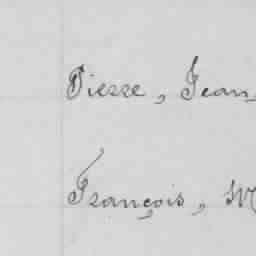 Pierre, Jean
François, M